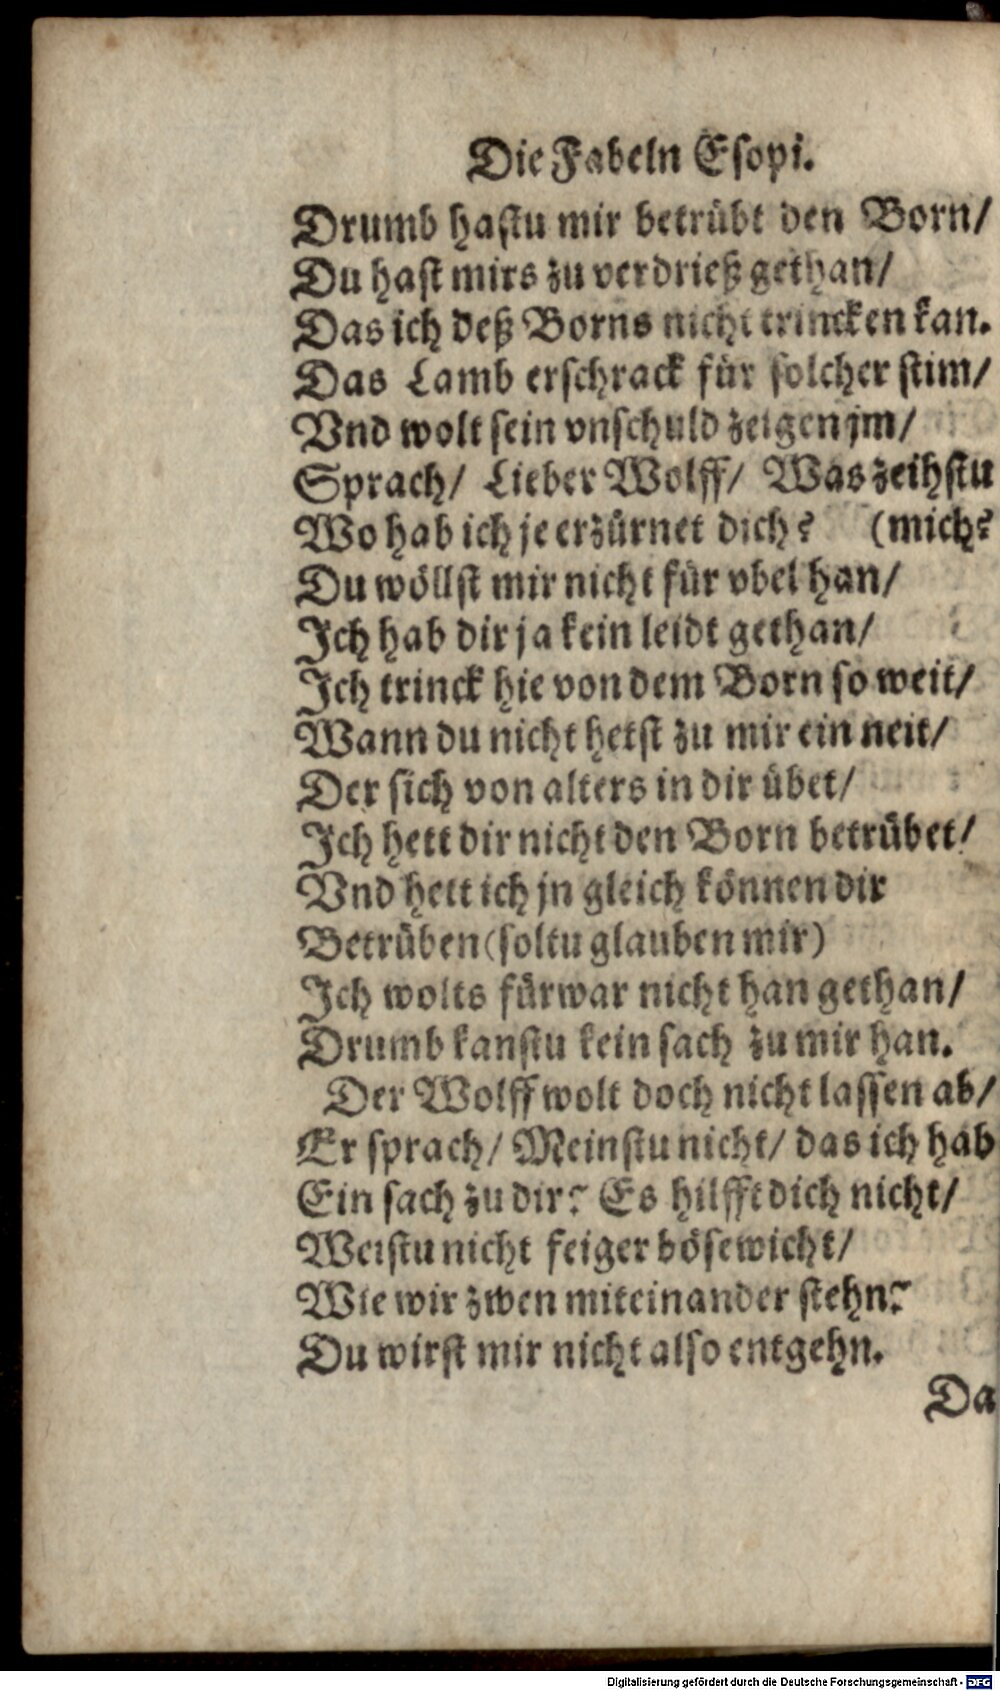 Die Fabeln Esopi.
Drumb hastu mir betrübt den Born/
Du hast mirs zu verdrieß gethan/
Das ich deß Borns nicht trincken kan.
Das Lamb erschrack für solcher stim/
Vnd wolt sein vnschuld zeigen jm/
Sprach/ Lieber Wolff/ Was zeihstu
Wo hab ich je erzürnet dich? (mich?
Du wöllst mir nicht für vbel han/
Ich hab dir ja kein leidt gethan/
Ich trinck hie von dem Born so weit/
Wann du nicht hetst zu mir ein neit/
Der sich von alters in dir übet/
Ich hett dir nicht den Born betrübet/
Vnd hett ich jn gleich können dir
Betrüben (soltu glauben mir)
Ich wolts fürwar nicht han gethan/
Drumb kanstu kein sach zu mir han.
Der Wolff wolt doch nicht lassen ab/
Er sprach/ Meinstu nicht/ das ich hab
Ein sach zu dir? Es hilfft dich nicht/
Weistu nicht feiger bösewicht/
Wie wir zwen miteinander stehn?
Du wirst mir nicht also entgehn.
Da
Digitalisierung gefördert durch die Deutsche Forschungsgemeinschaft - DFG